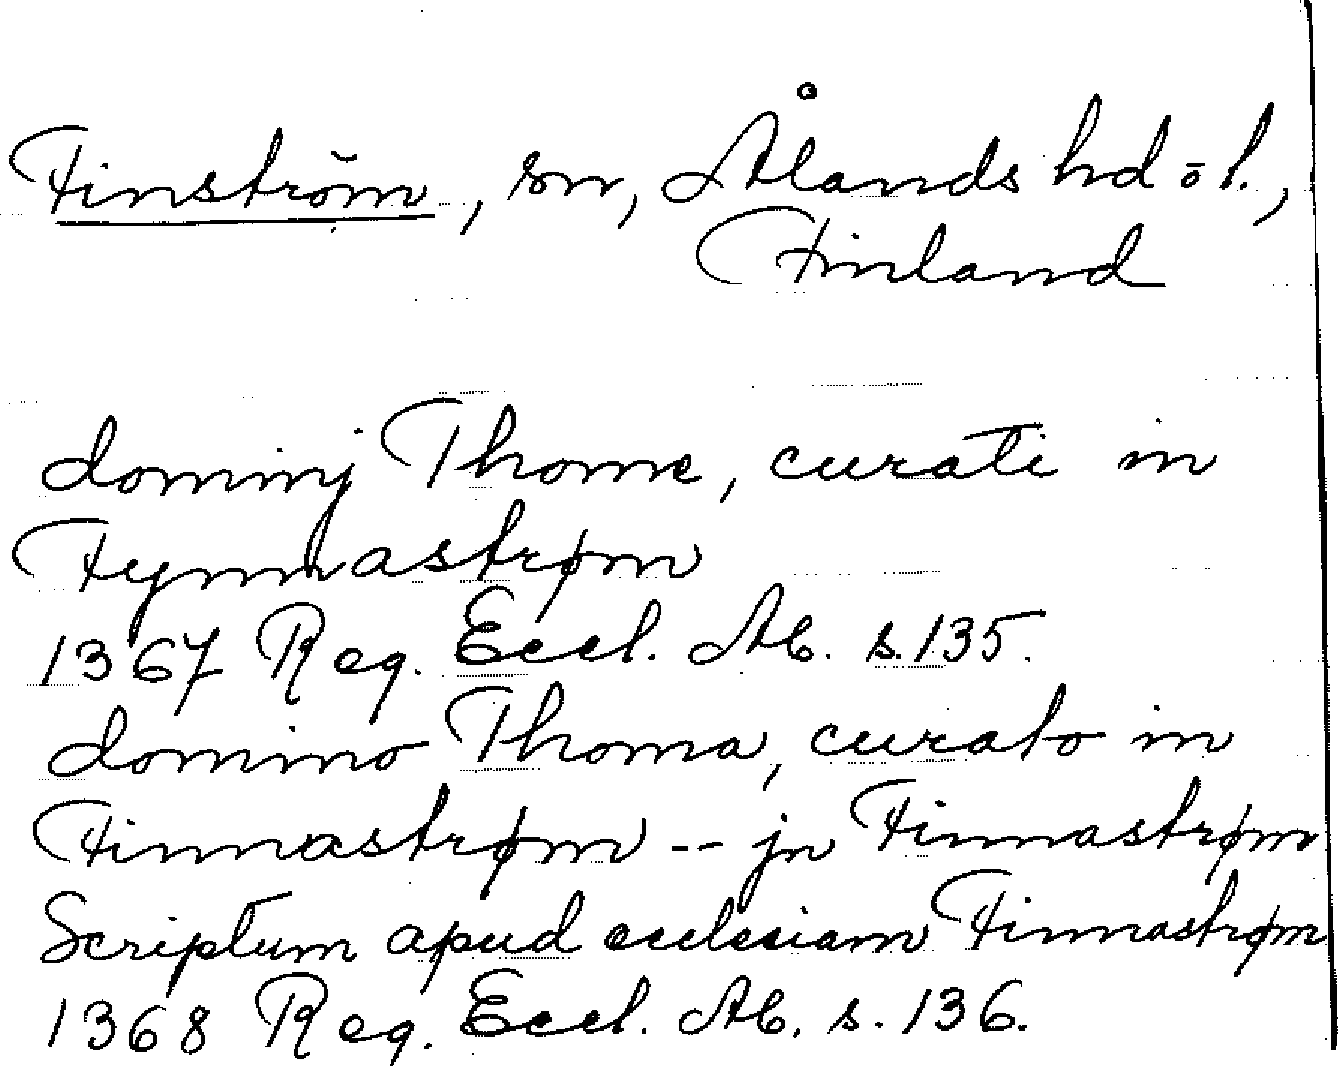 Finström, sn, Ålands hd o l.,
Finland
dominj Thome, curati in
Fynnastrøm
1367 Reg. Eccl. Ab. s. 135.
domino Thoma, curato in
Finnastrøm -- jn Finnastrøm
Scriptum apud ecclesiam Finnastrøm
1368 Reg. Eccl. Ab. s. 136.